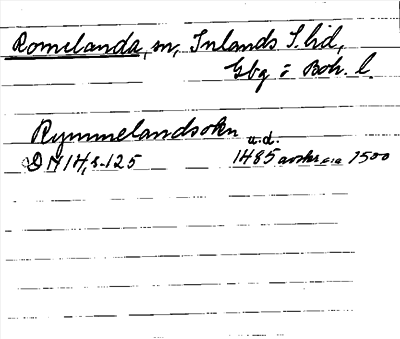 Romelanda, sn, Inlands S. hd,
Gbg o Boh. l.
Rymmelandsokn u.d.
DN 14, s. 125 1485 avskr. ca 1500